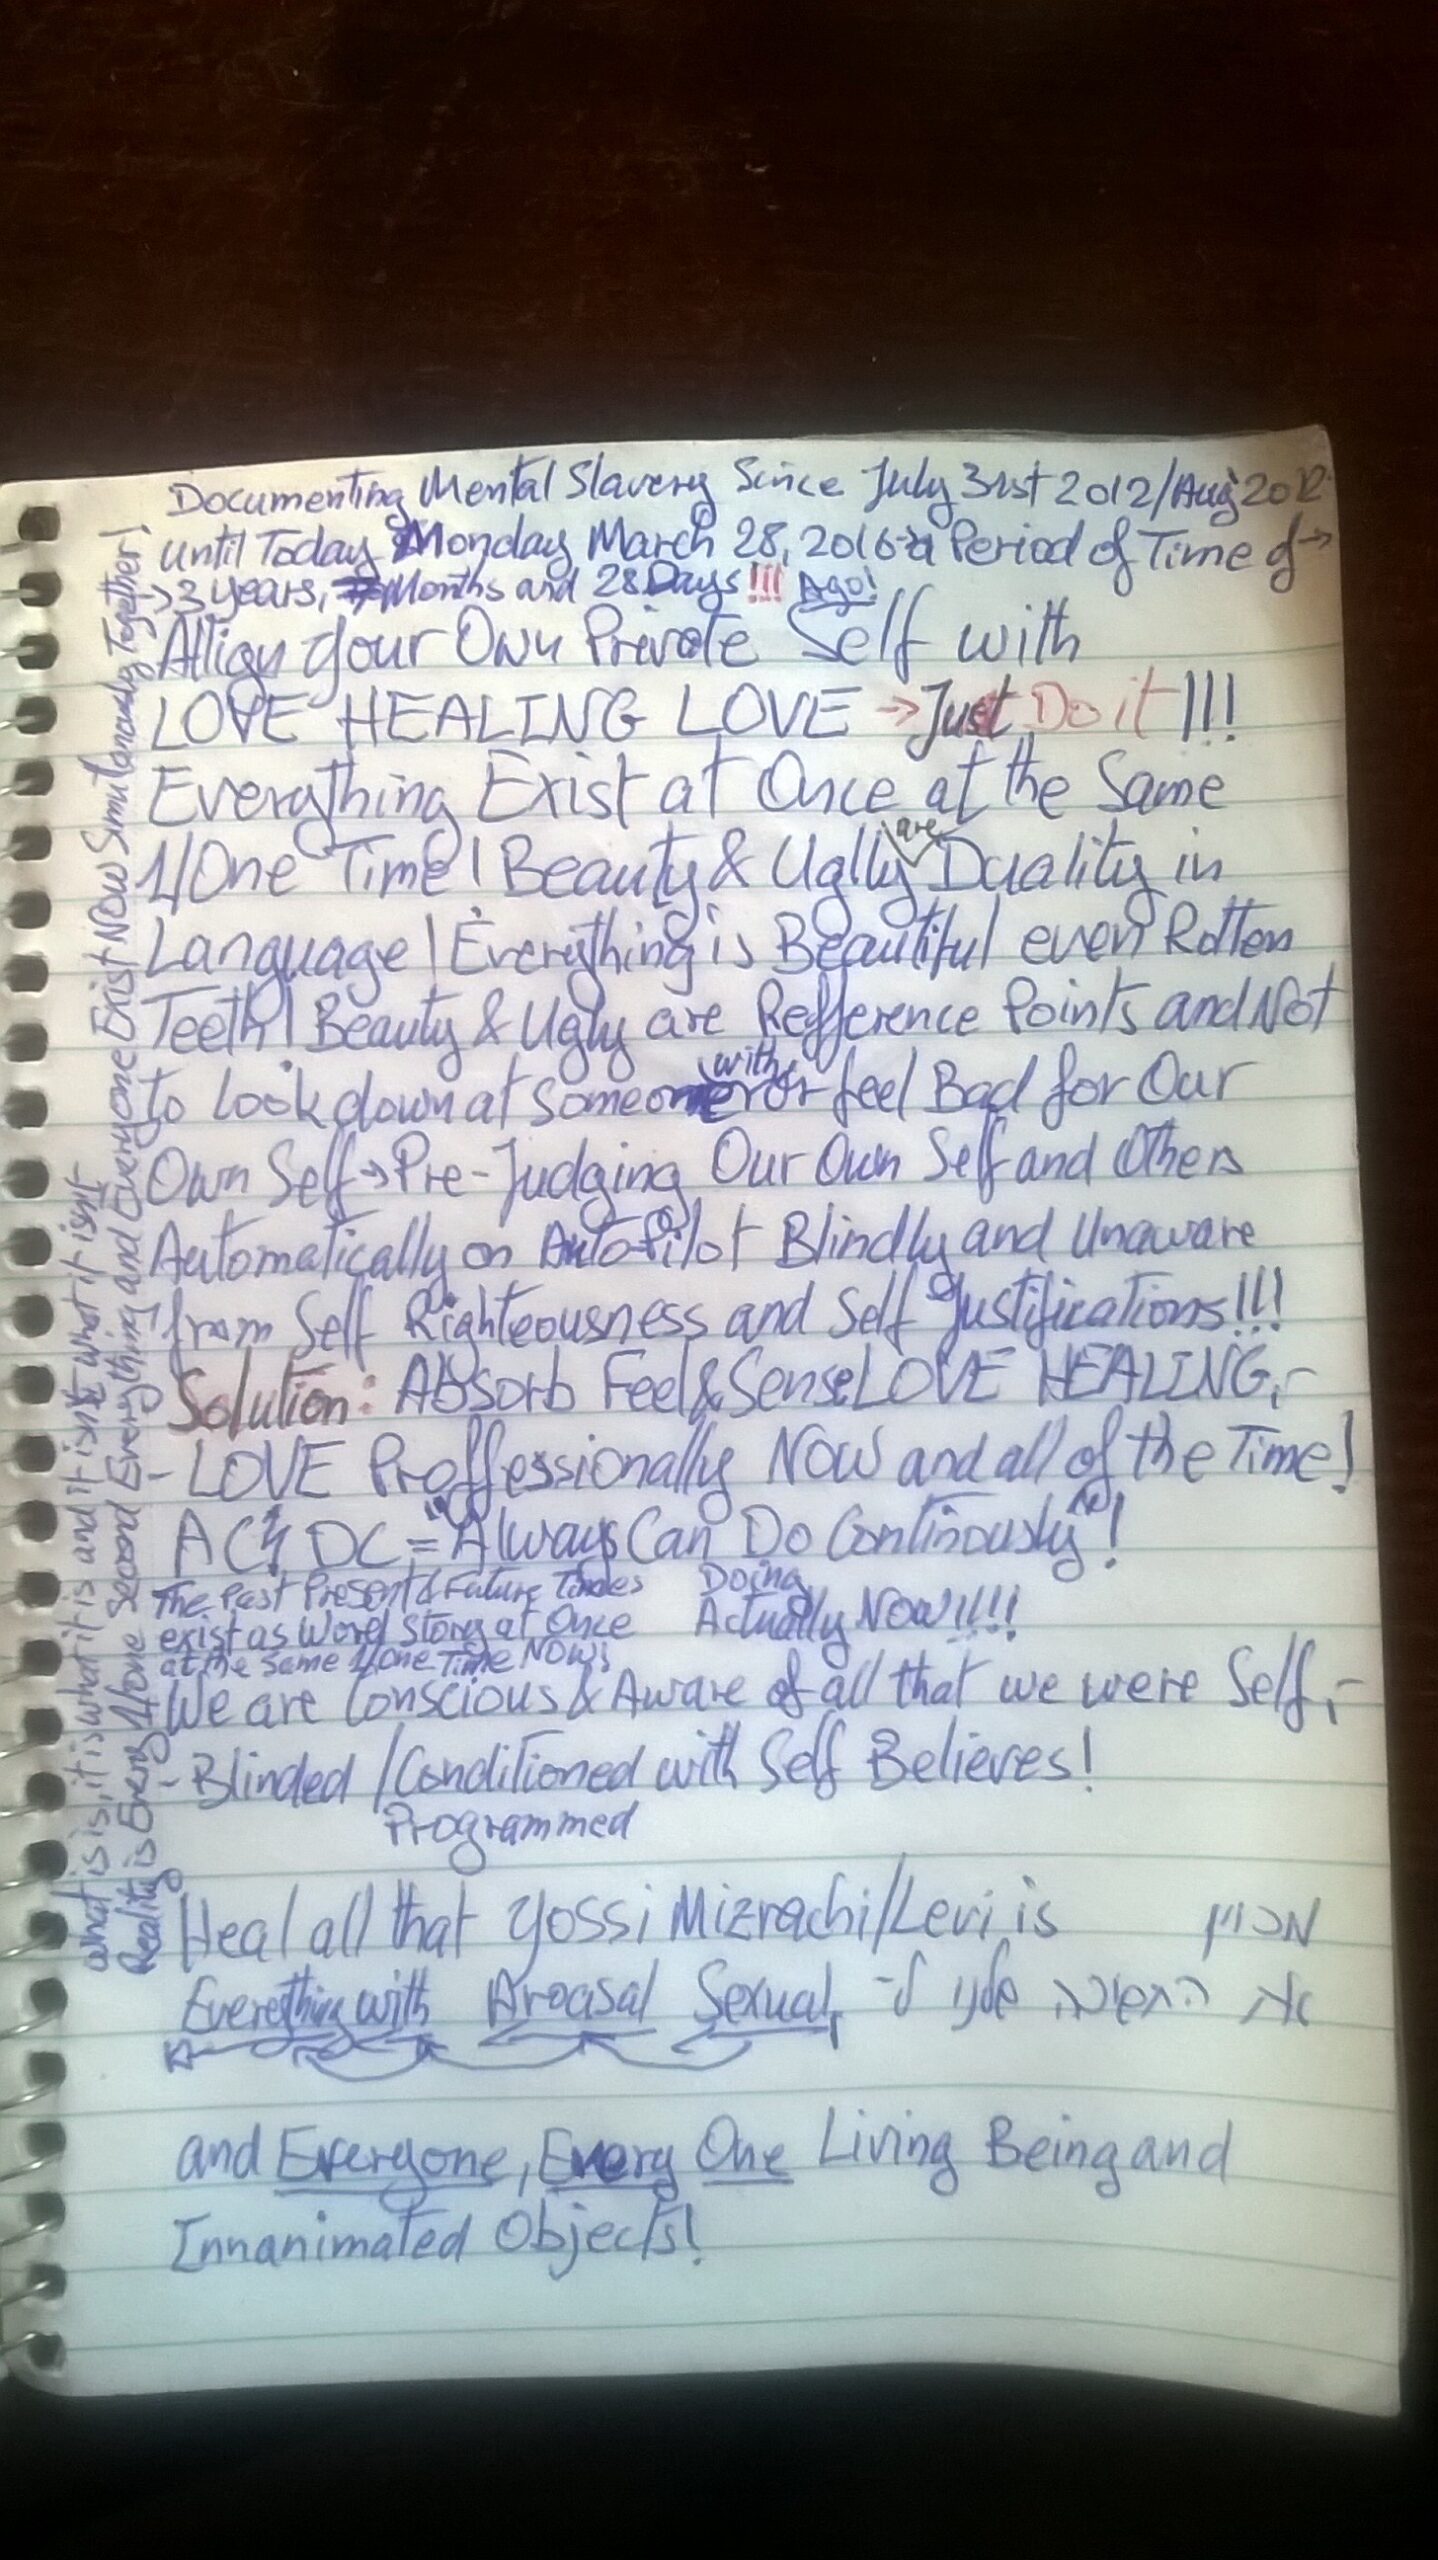 Documenting Mental Slavery Since July 31st 2012/Aug 2012
until Today Monday March 28, 2016→a Period of Time of→
→3 years, 7 Months and 28 Days!!! Ago!
Allign Your Own Private Self with
LOVE HEALING LOVE → Just Do it !!!
Everything Exist at Once at the Same
1/One Time! Beauty & Uglly are Duality in
Language! Everything is Beautiful even Rotten
Teeth! Beauty & Ugly are Refference Points and Not
to look down at someone with or feel Bad for Our
Own Self→Pre-Judging Our Own Self and Others
Automatically on AutoPilot Blindly and Unaware
from Self Righteousness and Self Justifications!!!
Solution: Absorb Feel & Sense LOVE HEALING,-
- LOVE Proffessionally NOW and all of the Time!
AC DC = "Always Can Do Continously"!
The Past Present & Future Times
exist as Word Story at Once
at the Same 1/One Time NOW!
Doing
Actually NOW!!!!
We are Conscious & Aware of all that we were Self,-
- Blinded /Conditioned with Self Believes!
Programmed
Heal all that Yossi Mizrachi/Levi is
מכוין
Everything with Aroasal Sexual,
את התשובה שלנו ל-
and Everyone, Every One Living Being and
Innanimated Objects!
What is is, it is what it is and it isn't what it isn't
Reality is Every 1/One Second Everything and Everyone Exist NOW Simultanously Together!